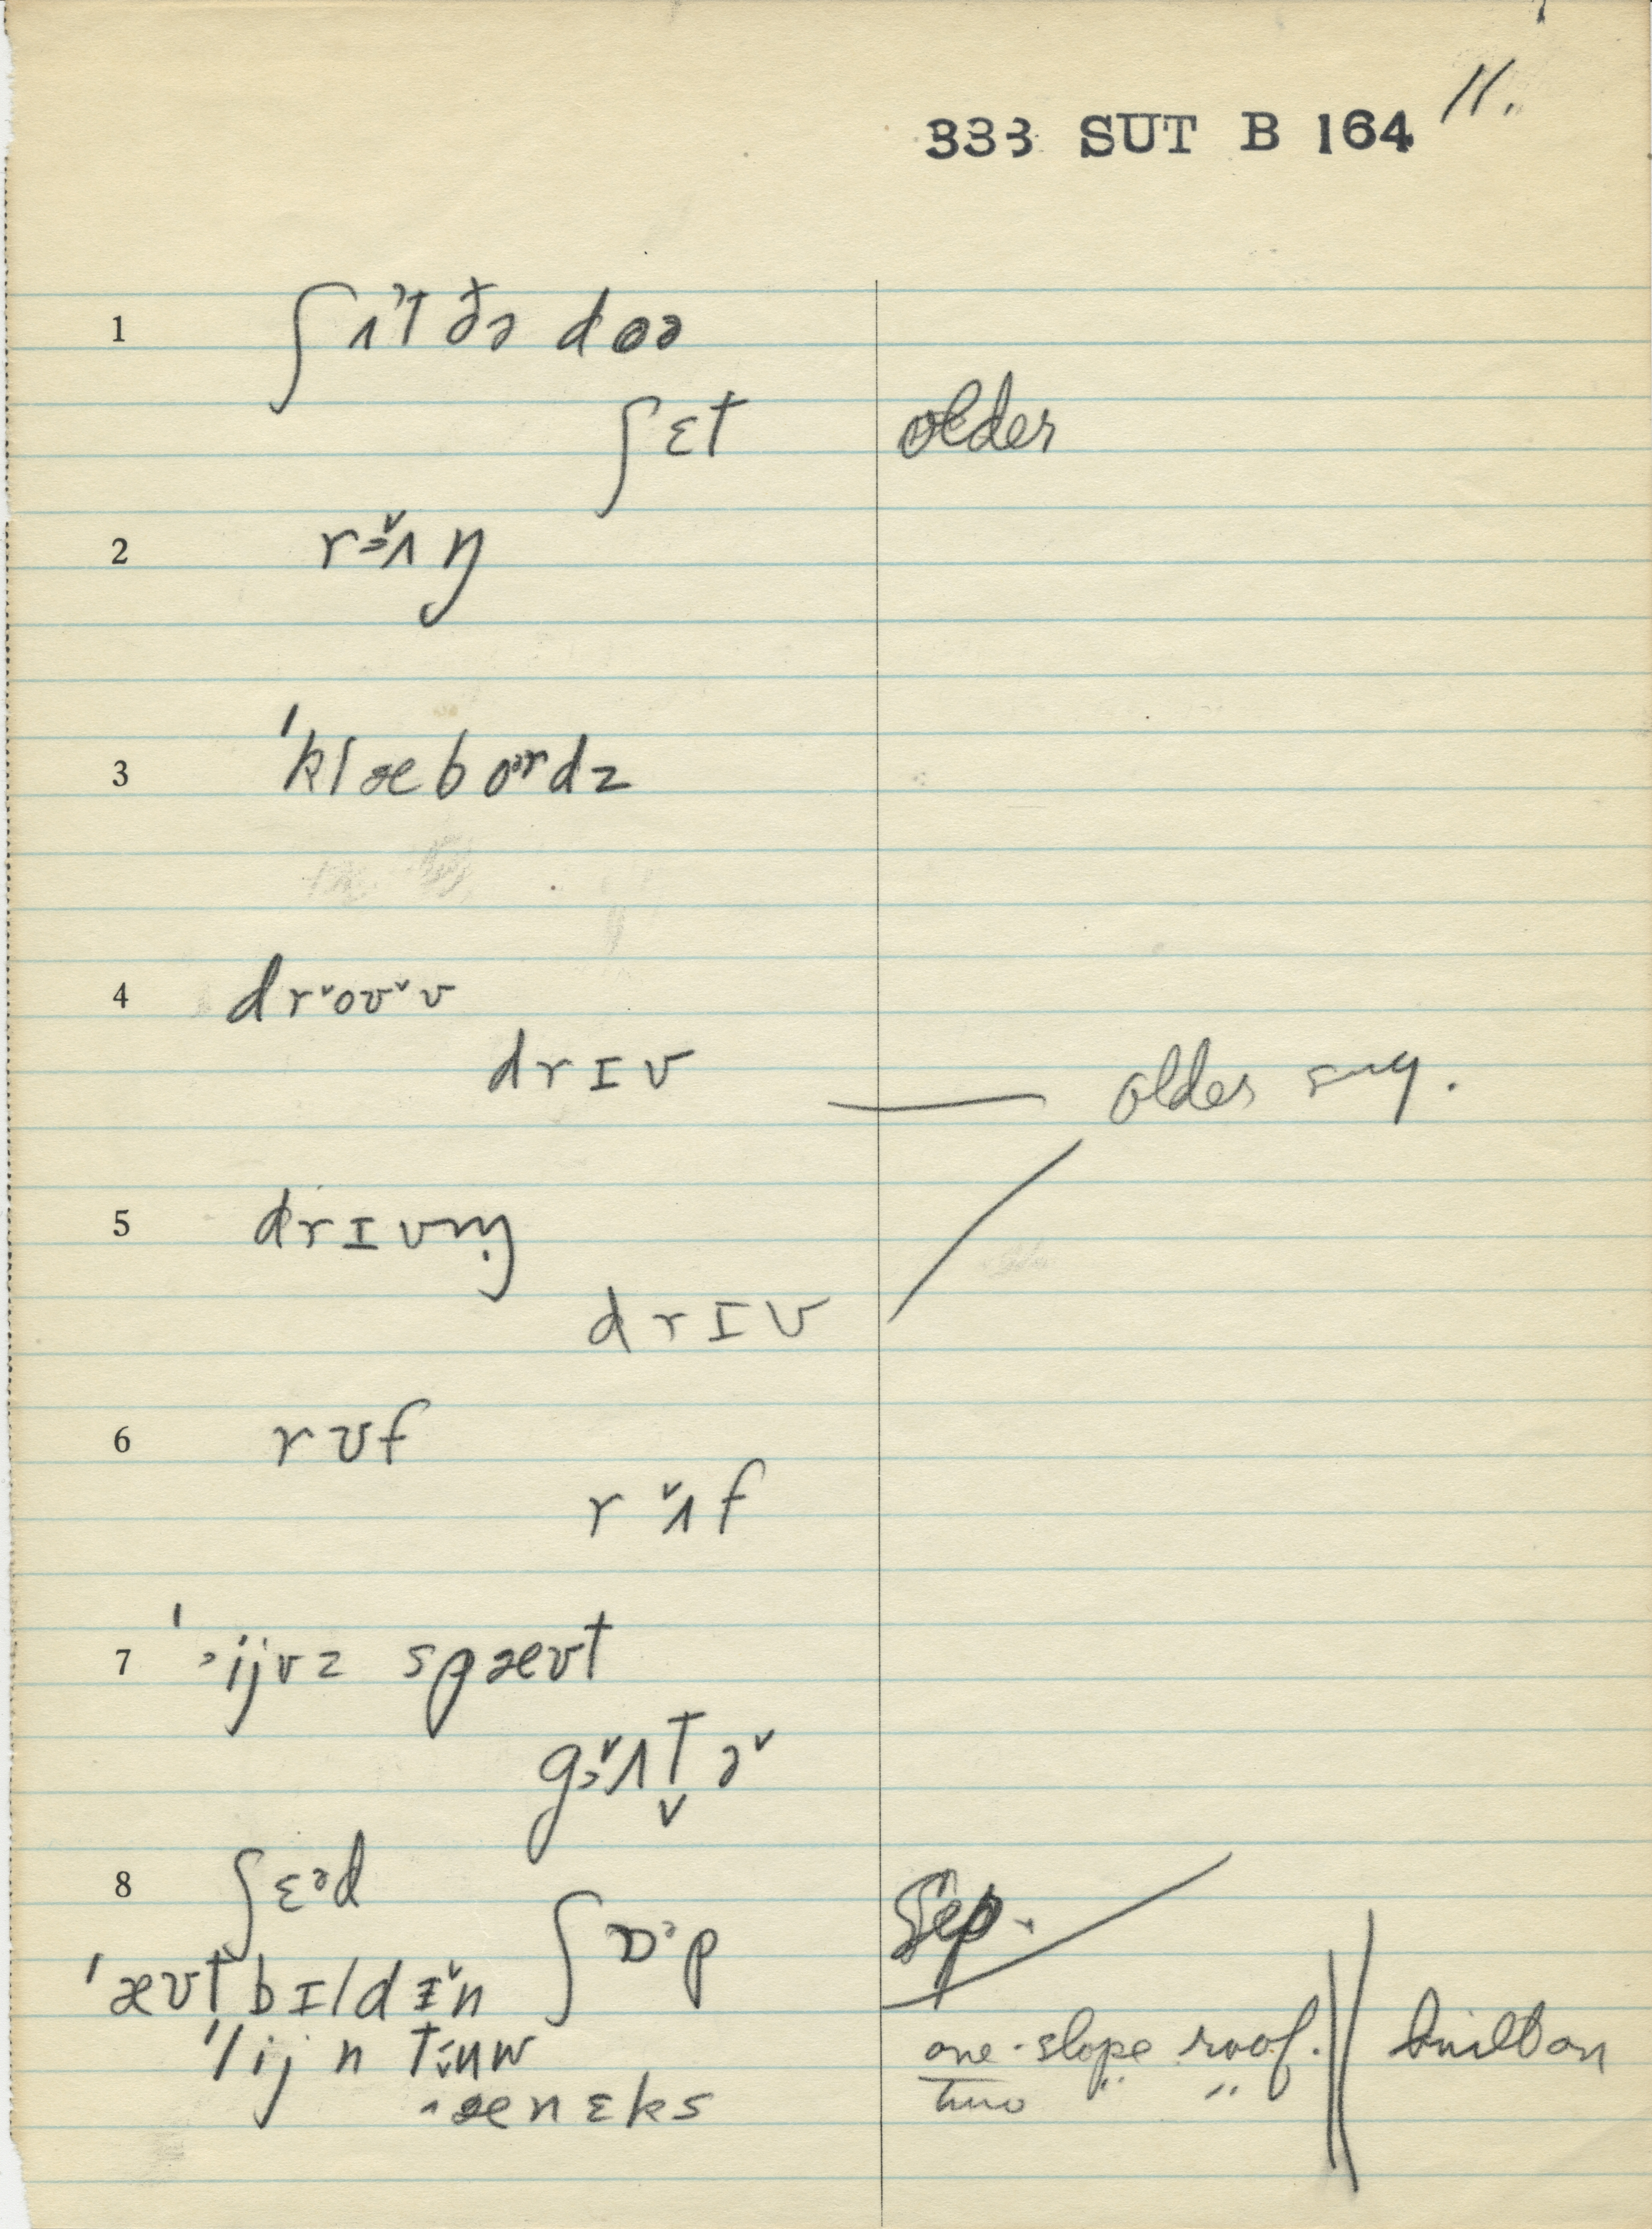 11.
333 SUT B 164
1 ʃʌᵊt ðə doə
ʃɛt older
2 rɜ˅ʌŋ
3 ˈklæboᵊrdz
4 dr˅oʊ˅v
drɪv — older sug.
5 drɪvɪŋ
drɪv
6 rʊf
r˅ʌf
7 ˈijvz spæʊt
gɜ˅ʌt̬ə˅
8 ʃɛᵊd
ʃɒᵊp Sep.
ˈæʊtbɪldɪ˅n
ˈlijn tɪuw one-slope roof. || built on
ænɛks two " "